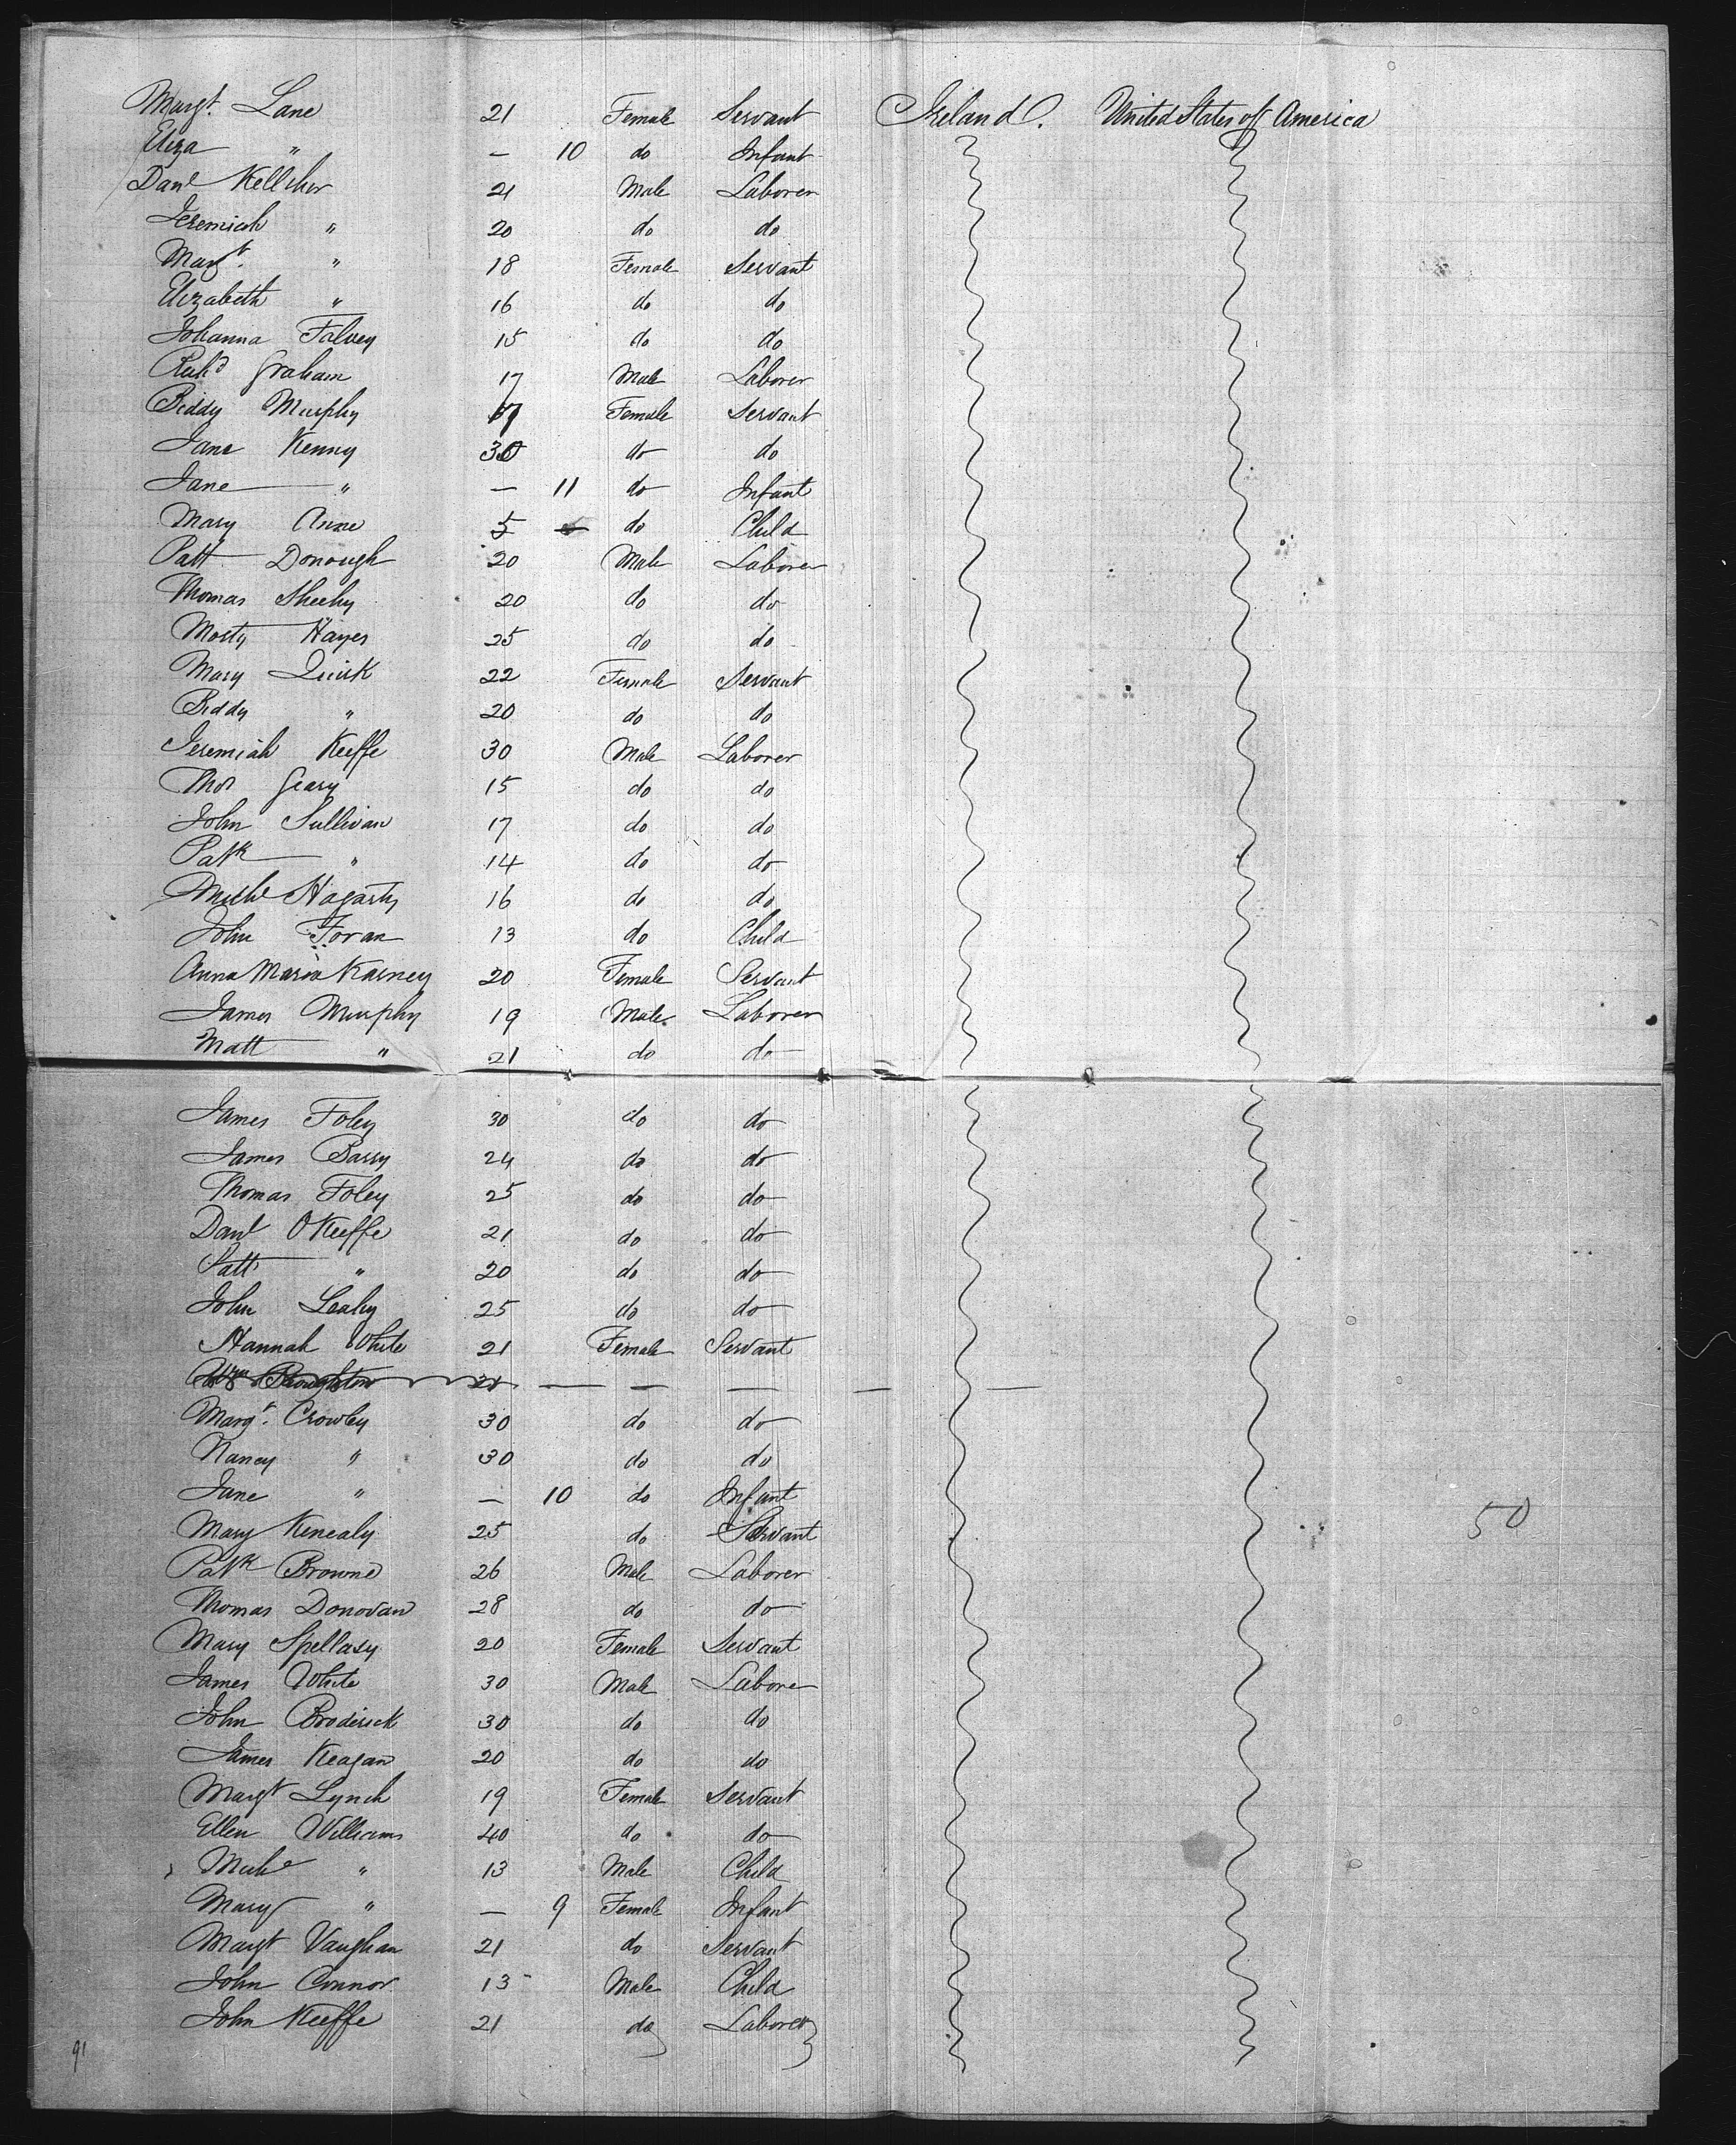 Margt. Lane 21 Female Servant Ireland. United States of America
Eliza " — 10 do Infant
Danl Kelleher 21 Male Laborer
Jeremiah " 20 do do
Margt. " 18 Female Servant
Elizabeth " 16 do do
Johanna Falvey 15 do do
Richd Graham 17 Male Laborer
Biddy Murphy 17 Female Servant
Jane Kenny 30 do do
Jane " — 11 do Infant
Mary Anne 5 do Child
Patt Donough 20 Male Laborer
Thomas Sheehy 20 do do
Morty Hayes 25 do do
Mary Quirk 22 Female Servant
Biddy " 20 do do
Jeremiah Keeffe 30 Male Laborer
Thos Geary 15 do do
John Sullivan 17 do do
Patk " 14 do do
Michl Hagarty 16 do do
John Foran 13 do Child
Anna Maria Karney 20 Female Servant
James Murphy 19 Male Laborer
Matt " 21 do do
James Foley 30 do do
James Barry 24 do do
Thomas Foley 25 do do
Danl OKeeffe 21 do do
Patt " 20 do do
John Leahy 25 do do
Hannah White 21 Female Servant
— — — — —
Margt. Crowley 30 do do
Nancy " 30 do do
Jane " — 10 do Infant
Mary Kenealy 25 do Servant
Patk Browne 26 Male Laborer
Thomas Donovan 28 do do
Mary Spellasy 20 Female Servant
James White 30 Male Labore
John Broderick 30 do do
James Keagan 20 do do
Margt Lynch 19 Female Servant
Ellen Williams 40 do do
Michl " 13 Male Child
Mary " — 9 Female Infant
Margt Vaughan 21 do Servant
John Connor 13 Male Child
John Keeffe 21 do Laborer
50
91